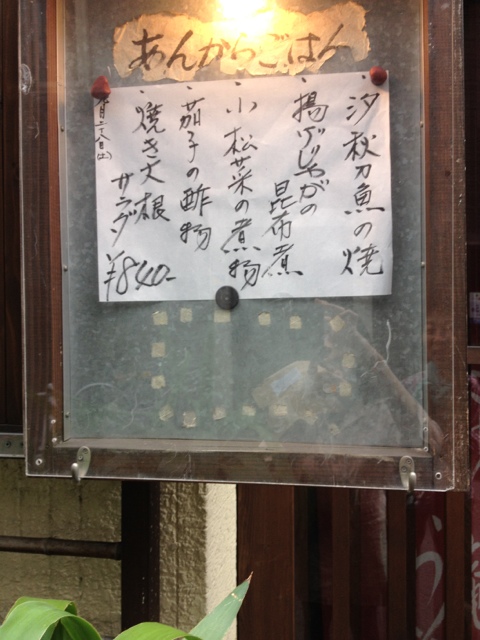 あんからごはん
・汐秋刀魚の焼
・揚げじゃがの
昆布煮
・小松菜の煮物
・茄子の酢物
・焼き大根
サラダ
¥840-